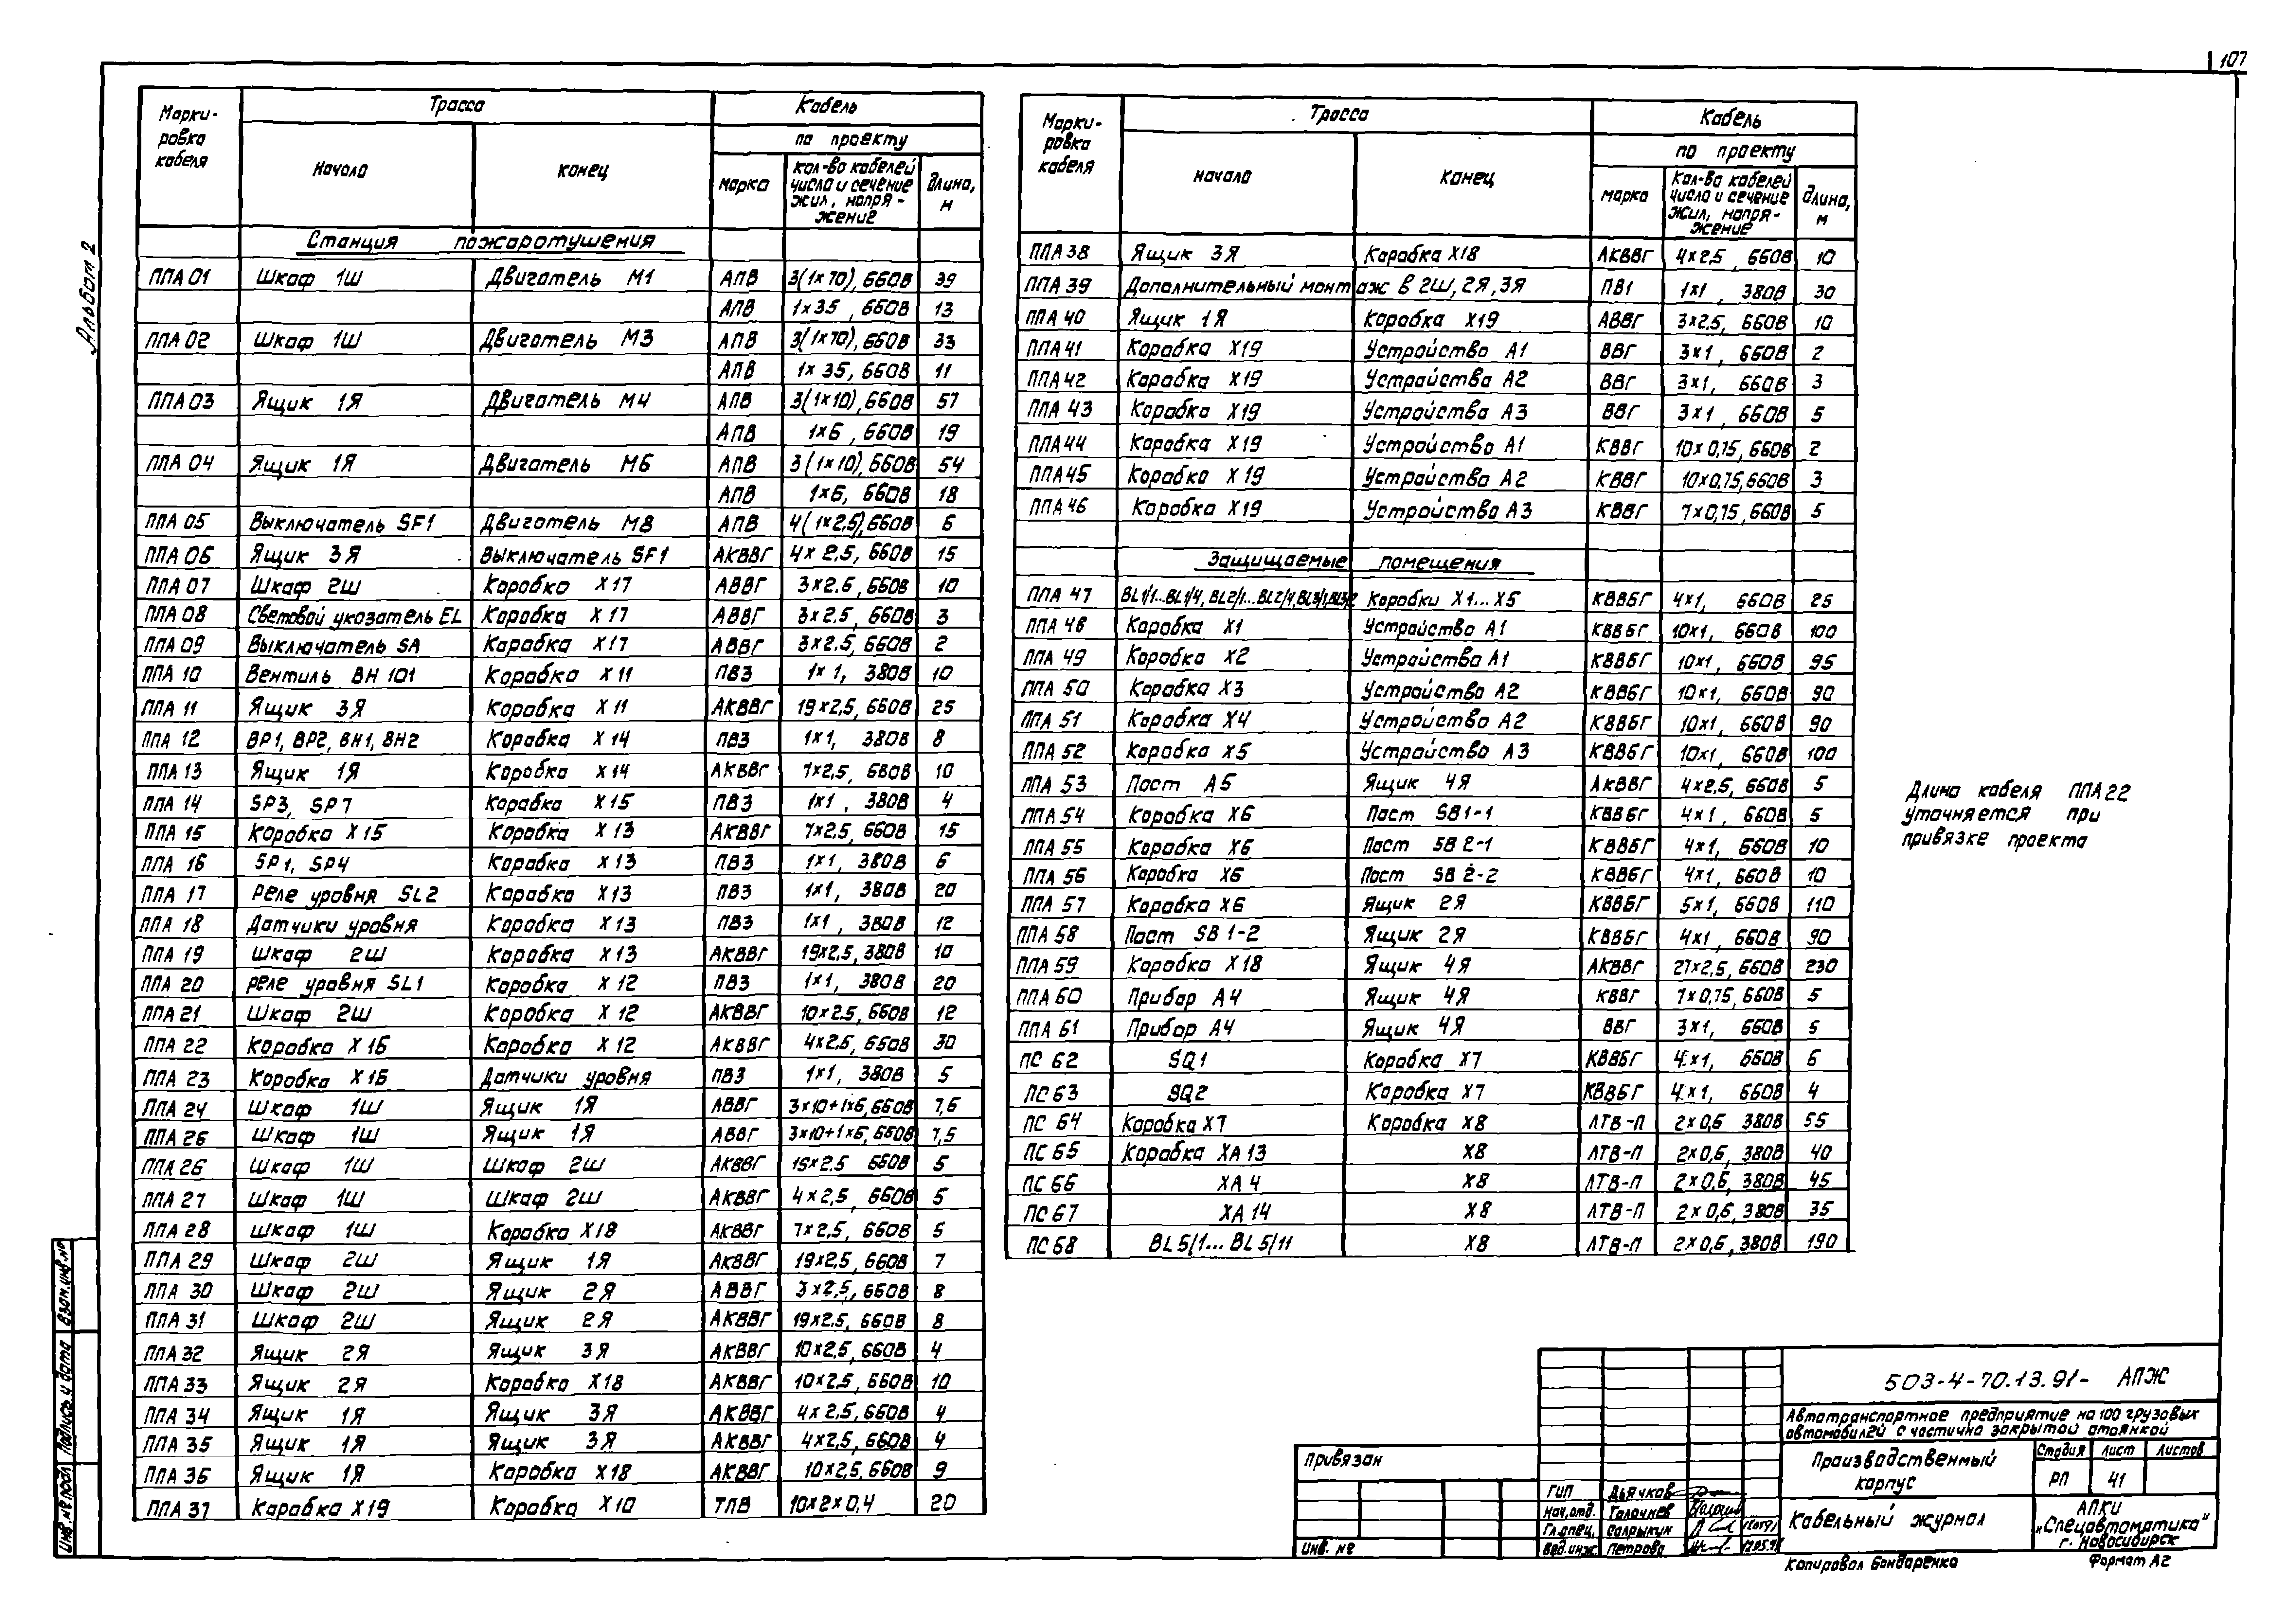 107
Альбом 2
Марки-
ровка
кабеля
Трасса
Кабель
Начало
конец
по проекту
марка
кол-во кабелей
число и сечение
жил, напря-
жение
Длина,
м
Станция пожаротушения
ППА 01 Шкаф 1Ш Двигатель М1 АПВ 3(1×70), 660В 39
АПВ 1×35, 660В 13
ППА 02 Шкаф 1Ш Двигатель М3 АПВ 3(1×70), 660В 33
АПВ 1×35, 660В 11
ППА 03 Ящик 1Я Двигатель М4 АПВ 3(1×10), 660В 57
АПВ 1×6, 660В 19
ППА 04 Ящик 1Я Двигатель М6 АПВ 3(1×10), 660В 54
АПВ 1×6, 660В 18
ППА 05 Выключатель SF1 Двигатель М8 АПВ 4(1×2,5), 660В 6
ППА 06 Ящик 3Я Выключатель SF1 АКВВГ 4×2.5, 660В 15
ППА 07 Шкаф 2Ш Коробка Х17 АВВГ 3×2.5, 660В 10
ППА 08 Световой указатель EL Коробка Х17 АВВГ 3×2.5, 660В 3
ППА 09 Выключатель SA Коробка Х17 АВВГ 3×2.5, 660В 2
ППА 10 Вентиль ВН 101 Коробка Х11 ПВ3 1×1, 380В 10
ППА 11 Ящик 3Я Коробка Х11 АКВВГ 19×2,5, 660В 25
ППА 12 ВР1, ВР2, ВН1, ВН2 Коробка Х14 ПВ3 1×1, 380В 8
ППА 13 Ящик 1Я Коробка Х14 АКВВГ 7×2,5, 660В 10
ППА 14 SP3, SP7 Коробка Х15 ПВ3 1×1, 380В 4
ППА 15 Коробка Х15 Коробка Х13 АКВВГ 7×2.5, 660В 15
ППА 16 SP1, SP4 Коробка Х13 ПВ3 1×1, 380В 6
ППА 17 реле уровня SL2 Коробка Х13 ПВ3 1×1, 380В 20
ППА 18 Датчики уровня Коробка Х13 ПВ3 1×1, 380В 12
ППА 19 Шкаф 2Ш Коробка Х13 АКВВГ 19×2.5, 380В 10
ППА 20 реле уровня SL1 Коробка Х12 ПВ3 1×1, 380В 20
ППА 21 Шкаф 2Ш Коробка Х12 АКВВГ 10×2.5, 660В 12
ППА 22 Коробка Х16 Коробка Х12 АКВВГ 4×2.5, 660В 30
ППА 23 Коробка Х16 Датчики уровня ПВ3 1×1, 380В 5
ППА 24 Шкаф 1Ш Ящик 1Я АВВГ 3×10+1×6, 660В 7,5
ППА 25 Шкаф 1Ш Ящик 1Я АВВГ 3×10+1×6, 660В 7,5
ППА 26 Шкаф 1Ш Шкаф 2Ш АКВВГ 19×2.5 660В 5
ППА 27 Шкаф 1Ш Шкаф 2Ш АКВВГ 4×2,5, 660В 5
ППА 28 Шкаф 1Ш Коробка Х18 АКВВГ 7×2,5, 660В 5
ППА 29 Шкаф 2Ш Ящик 1Я АКВВГ 19×2,5, 660В 7
ППА 30 Шкаф 2Ш Ящик 2Я АВВГ 3×2,5, 660В 8
ППА 31 Шкаф 2Ш Ящик 2Я АКВВГ 19×2,5, 660В 8
ППА 32 Ящик 2Я Ящик 3Я АКВВГ 10×2,5, 660В 4
ППА 33 Ящик 2Я Коробка Х18 АКВВГ 10×2,5, 660В 10
ППА 34 Ящик 1Я Ящик 3Я АКВВГ 4×2,5, 660В 4
ППА 35 Ящик 1Я Ящик 3Я АКВВГ 4×2,5, 660В 4
ППА 36 Ящик 1Я Коробка Х18 АКВВГ 10×2,5, 660В 9
ППА 37 Коробка Х19 Коробка Х10 ТПВ 10×2×0,4 20
Марки-
ровка
кабеля
Трасса
Кабель
начало
конец
по проекту
марка
Кол-во кабелей
число и сечение
жил, напря-
жение
Длина,
м
ППА 38 Ящик 3Я Коробка Х18 АКВВГ 4×2,5, 660В 10
ППА 39 Дополнительный монтаж в 2Ш, 2Я, 3Я ПВ1 1×1, 380В 30
ППА 40 Ящик 1Я Коробка Х19 АВВГ 3×2,5, 660В 10
ППА 41 Коробка Х19 Устройство А1 ВВГ 3×1, 660В 2
ППА 42 Коробка Х19 Устройство А2 ВВГ 3×1, 660В 3
ППА 43 Коробка Х19 Устройство А3 ВВГ 3×1, 660В 5
ППА 44 Коробка Х19 Устройство А1 КВВГ 10×0,75, 660В 2
ППА 45 Коробка Х19 Устройство А2 КВВГ 10×0,75, 660В 3
ППА 46 Коробка Х19 Устройство А3 КВВГ 7×0,75, 660В 5
Защищаемые помещения
ППА 47 BL1/1...BL1/4, BL2/1...BL2/4, BL3/1, BL3/2 Коробки Х1...Х5 КВВБГ 4×1, 660В 25
ППА 48 Коробка Х1 Устройство А1 КВВБГ 10×1, 660В 100
ППА 49 Коробка Х2 Устройство А1 КВВБГ 10×1, 660В 95
ППА 50 Коробка Х3 Устройство А2 КВВБГ 10×1, 660В 90
ППА 51 Коробка Х4 Устройство А2 КВВБГ 10×1, 660В 90
ППА 52 Коробка Х5 Устройство А3 КВВБГ 10×1, 660В 100
ППА 53 Пост А5 Ящик 4Я АКВВГ 4×2,5, 660В 5
ППА 54 Коробка Х6 Пост SB1-1 КВВБГ 4×1, 660В 5
ППА 55 Коробка Х6 Пост SB2-1 КВВБГ 4×1, 660В 10
ППА 56 Коробка Х6 Пост SB2-2 КВВБГ 4×1, 660В 10
ППА 57 Коробка Х6 Ящик 2Я КВВБГ 5×1, 660В 110
ППА 58 Пост SB1-2 Ящик 2Я КВВБГ 4×1, 660В 90
ППА 59 Коробка Х18 Ящик 4Я АКВВГ 27×2,5, 660В 230
ППА 60 Прибор А4 Ящик 4Я КВВГ 7×0,75, 660В 5
ППА 61 Прибор А4 Ящик 4Я ВВГ 3×1, 660В 5
ПС 62 SQ1 Коробка Х7 КВВБГ 4×1, 660В 6
ПС 63 SQ2 Коробка Х7 КВВБГ 4×1, 660В 4
ПС 64 Коробка Х7 Коробка Х8 ЛТВ-П 2×0,6 380В 55
ПС 65 Коробка ХА13 Х8 ЛТВ-П 2×0,6, 380В 40
ПС 66 ХА4 Х8 ЛТВ-П 2×0,6, 380В 45
ПС 67 ХА14 Х8 ЛТВ-П 2×0,6, 380В 35
ПС 68 BL5/1...BL5/11 Х8 ЛТВ-П 2×0,6, 380В 190
Длина кабеля ППА22
уточняется при
привязке проекта
503-4-70.13.91- АПЖ
Автотранспортное предприятие на 100 грузовых
автомобилей с частично закрытой стоянкой
Производственный
корпус
Стадия Лист Листов
РП 41
Кабельный журнал
АПКИ
„Спецавтоматика"
г. Новосибирск
Привязан
Инв. №
ГИП Дьячков
Нач.отд. Толочнев
Гл.спец. Салрыкин
Вед.инж. Петрова
Копировал Бондаренко
Формат А2
Взам.инв.№
Подпись и дата
Инв.№ подл